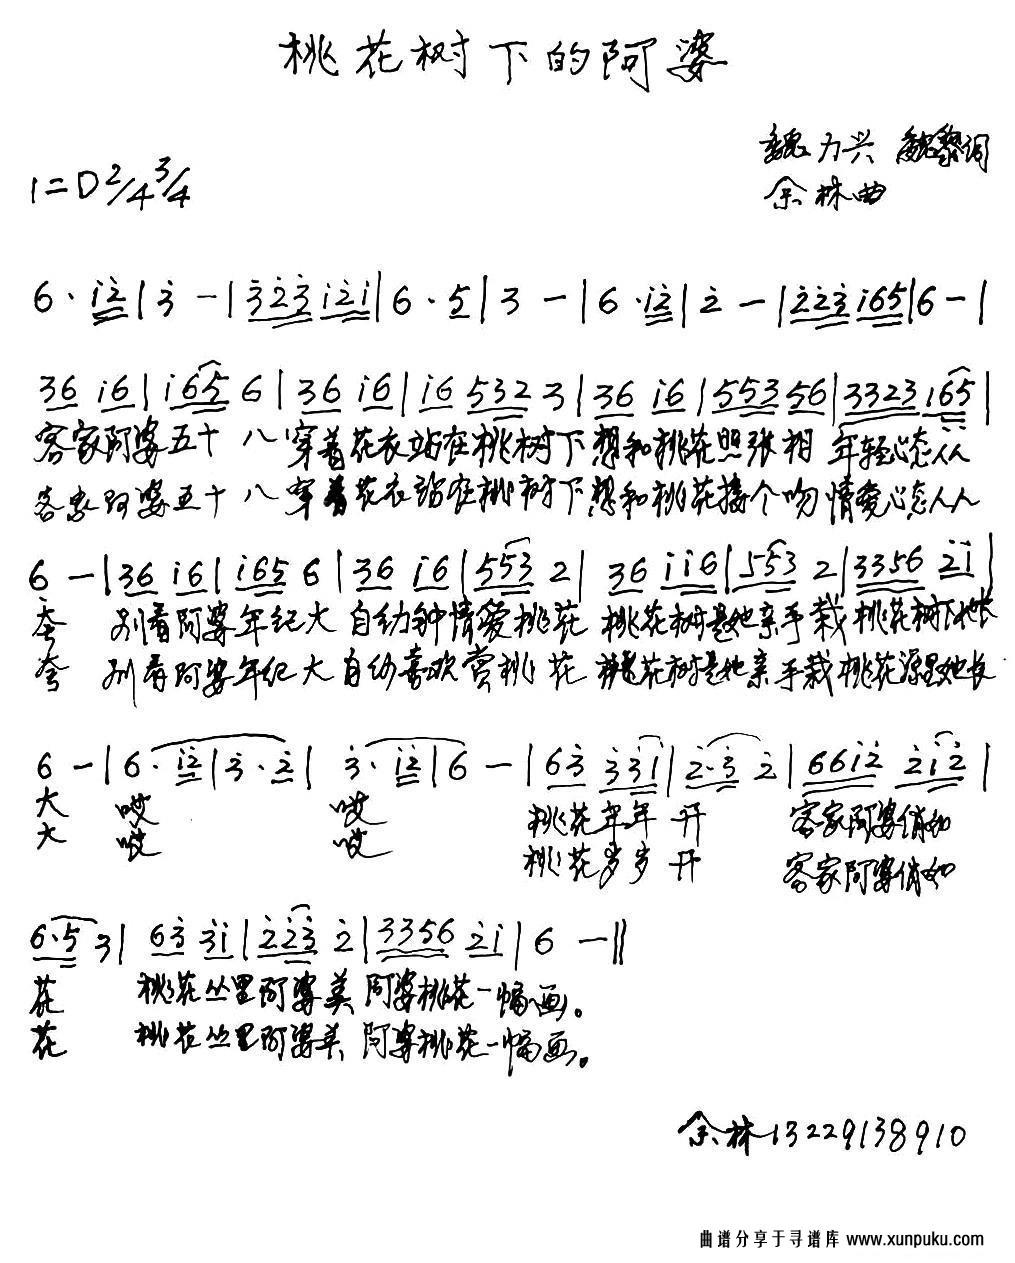 桃花树下的阿婆
魏力兴 魏黎词
1=D 2/4 3/4
余林曲
6· i̇2̇ | 3̇ — | 3̇2̇3̇ i̇2̇i̇ | 6·5 | 3 — | 6· i̇2̇ | 2̇ — | 2̇2̇3̇ i̇65 | 6 — |
36 i̇6 | i̇65 6 | 36 i̇6 | i̇6 532 3 | 36 i̇6 | 553 56 | 3323 i̇65 |
客家阿婆五十八 穿着花衣站在桃树下 想和桃花照张相 年轻心态人人
客家阿婆五十八 穿着花衣站在桃树下 想和桃花接个吻 情爱心态人人
6 — | 36 i̇6 | i̇65 6 | 36 i̇6 | 553 2 | 36 i̇i̇6 | 553 2 | 3356 2̇i̇ |
夸 别看阿婆年纪大 自幼钟情爱桃花 桃花树是她亲手栽 桃花树下她长
夸 别看阿婆年纪大 自幼喜欢赏桃花 桃花树是她亲手栽 桃花源里她长
6 — | 6· i̇2̇ | 3̇·2̇ | 3̇· i̇2̇ | 6 — | 63̇ 3̇3̇i̇ | 2̇·3̇ 2̇ | 66i̇2̇ 2̇i̇2̇ |
大 哎 哎 桃花年年开 客家阿婆俏如
大 哎 哎 桃花岁岁开 客家阿婆俏如
6·5 3 | 63̇ 3̇i̇ | 2̇2̇3̇ 2̇ | 3356 2̇i̇ | 6 — ‖
花 桃花丛里阿婆美 阿婆桃花一幅画。
花 桃花丛里阿婆美 阿婆桃花一幅画。
余林13229138910
曲谱分享于寻谱库 www.xunpuku.com